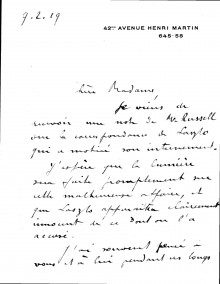 9.2.19
42bis AVENUE HENRI MARTIN
645-58
Chère Madame
Je viens de
recevoir une note de Mr Russell
sur la correspondance de Laszlo
qui a motivé son internement.
J'espère que la lumière
sera faite promptement sur
cette malheureuse affaire, et
que Laszlo apparaîtra clairement
innocent de ce dont on l'a
accusé.
J'ai souvent pensé à
vous et à lui pendant ces longs